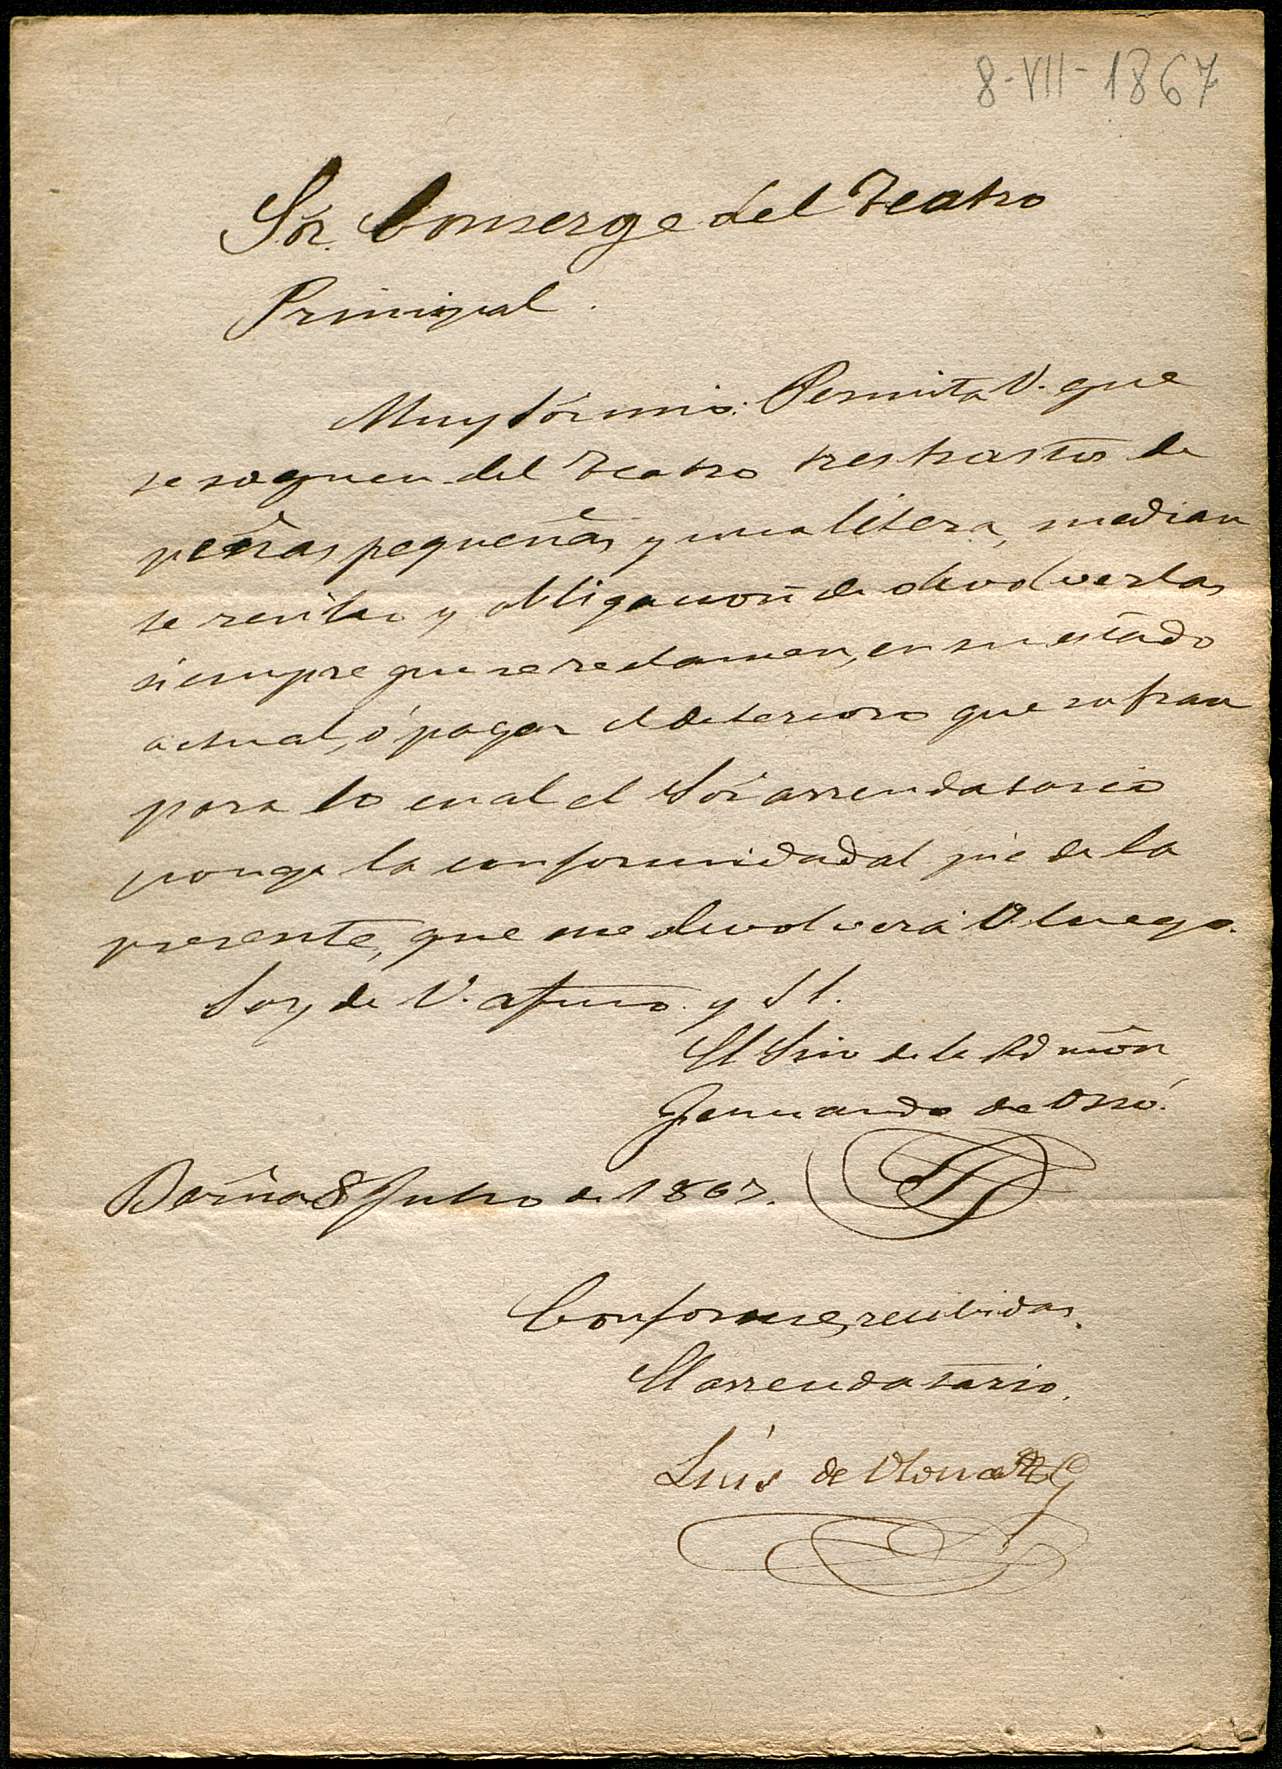 8-VII-1867
Sór. Conserge del Teatro
Principal.
Muy Sór mio: Permita V. que
se saquen del Teatro tres trastos de
peñas pequeñas y una litera, median
te recibo y obligacion de devolverlas
siempre que se reclamen, en su estado
actual, ó pagar el deterioro que sufran
para lo cual el Sór arrendatario
ponga la conformidad al pie de la
presente, que me devolverá V. luego.
Soy de V. afmo. y S S.
El Srio de la Admón
Fernando de Ossó.
Barna 8 Julio de 1867.
Conforme, recibidas.
El arrendatario,
Luis de Olona